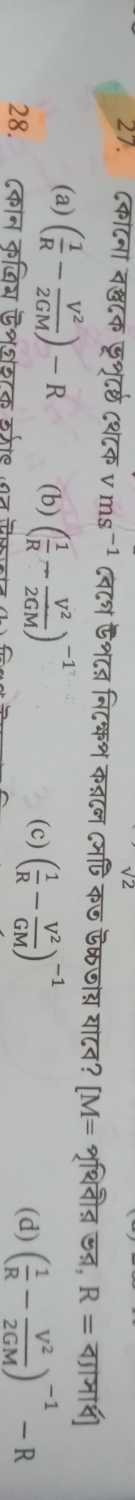 27. কোনো বস্তুকে ভূপৃষ্ঠ থেকে v ms⁻¹ বেগে উপরে নিক্ষেপ করলে সেটি কত উচ্চতায় যাবে? [M= পৃথিবীর ভর, R = ব্যাসার্ধ]
(a) (1/R − v²/2GM) − R (b) (1/R − v²/2GM)⁻¹ (c) (1/R − v²/GM)⁻¹ (d) (1/R − v²/2GM)⁻¹ − R
28. কোন কৃত্রিম উপগ্রহকে হঠাৎ এর